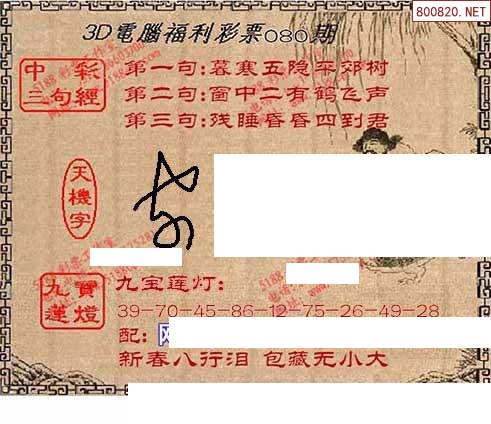 800820.NET
3D電腦福利彩票080期
中彩
三句經
第一句:暮寒五隐平郊树
第二句:窗中二有鹤飞声
第三句:残睡昏昏四到君
天機字
九寶
蓮燈
九宝莲灯:
39-70-45-86-12-75-26-49-28
配:
新春八行泪 包藏无小大